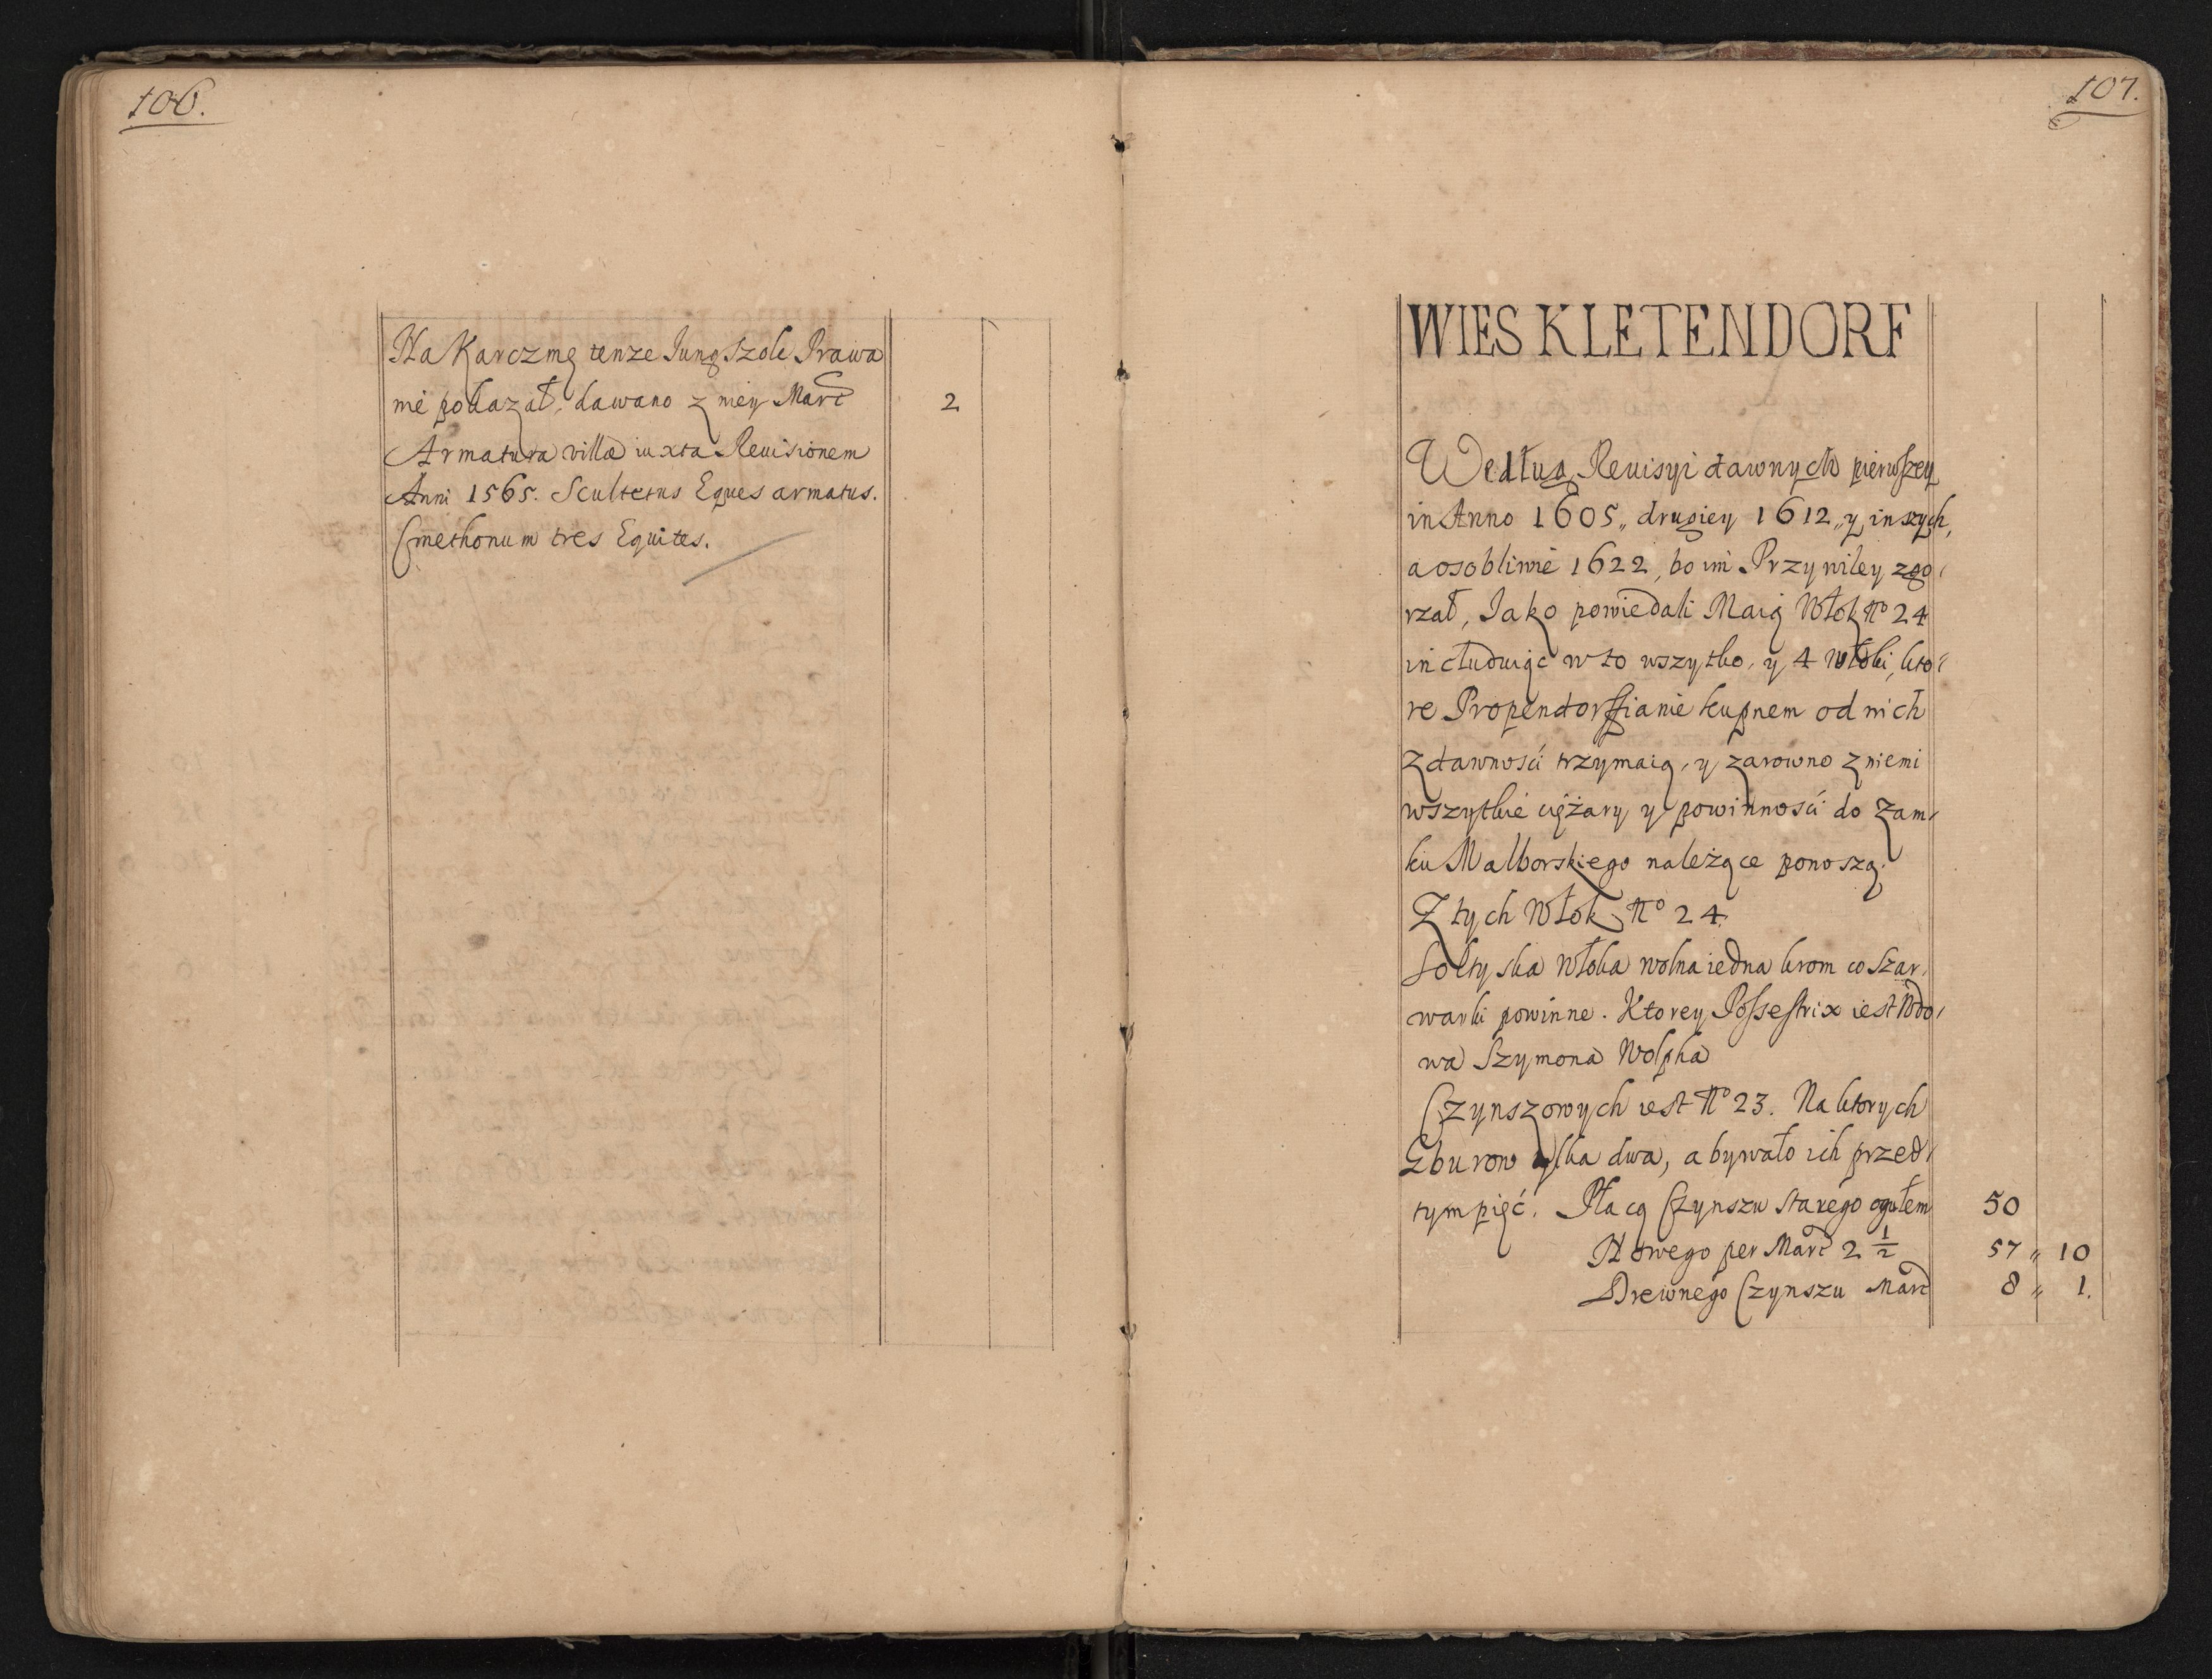 106.
Na Karczmę tenze Jung Szole Prawa
nie pokazał, dawano z niey Marc 2
Armatura villæ iuxta Reuisionem
Anni 1565. Scultetus Eques armatus.
Cmethonum tres Equites.
107.
WIES KLETENDORF
Według Reuisyi dawnych pierwszey
in Anno 1605,, drugiey 1612,, y inszych,
a osobliwie 1622, bo im Przywiley zgo-
rzał, Jako powiedali Maią Włok No 24
includuiąc w to wszytko, y 4 Włoki, kto-
re Propendorffianie kupnem od nich
z dawnosci trzymaią, y zarowno z niemi
wszytkie ciężary y powinnosci do Zam-
ku Malborskiego należące ponoszą.
Z tych Włok No 24.
Sołtyska Włoka wolna iedna krom co Szar-
warki powinne. Ktorey Possestrix iest Wdo-
wa Szymona Wolpha
Czynszowych iest No 23. Na ktorych
Gburow tylka dwa, a bywało ich przed-
tym pięć. Płacą Czynszu starego ogułem 50
Nowego per Marc 2 1/2 57 ,, 10
Drewnego Czynszu Marc 8 ,, 1.